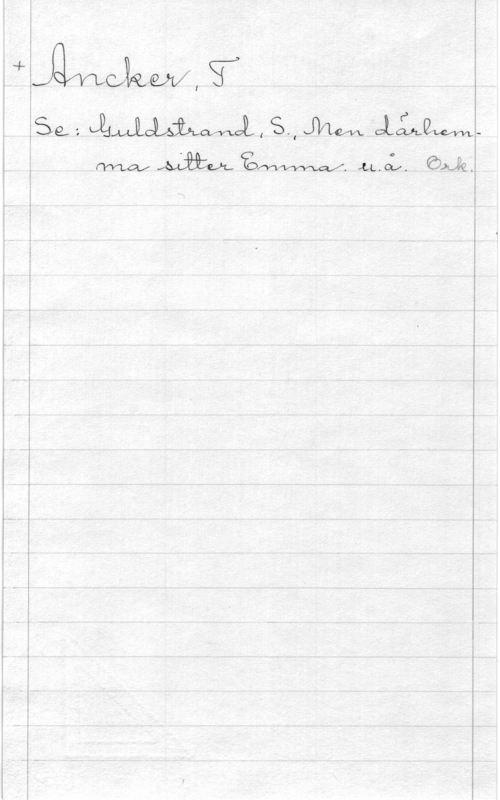 + Ancker, T
Se: Guldstrand, S., Men därhem-
ma sitter Emma. u.å. Ork.